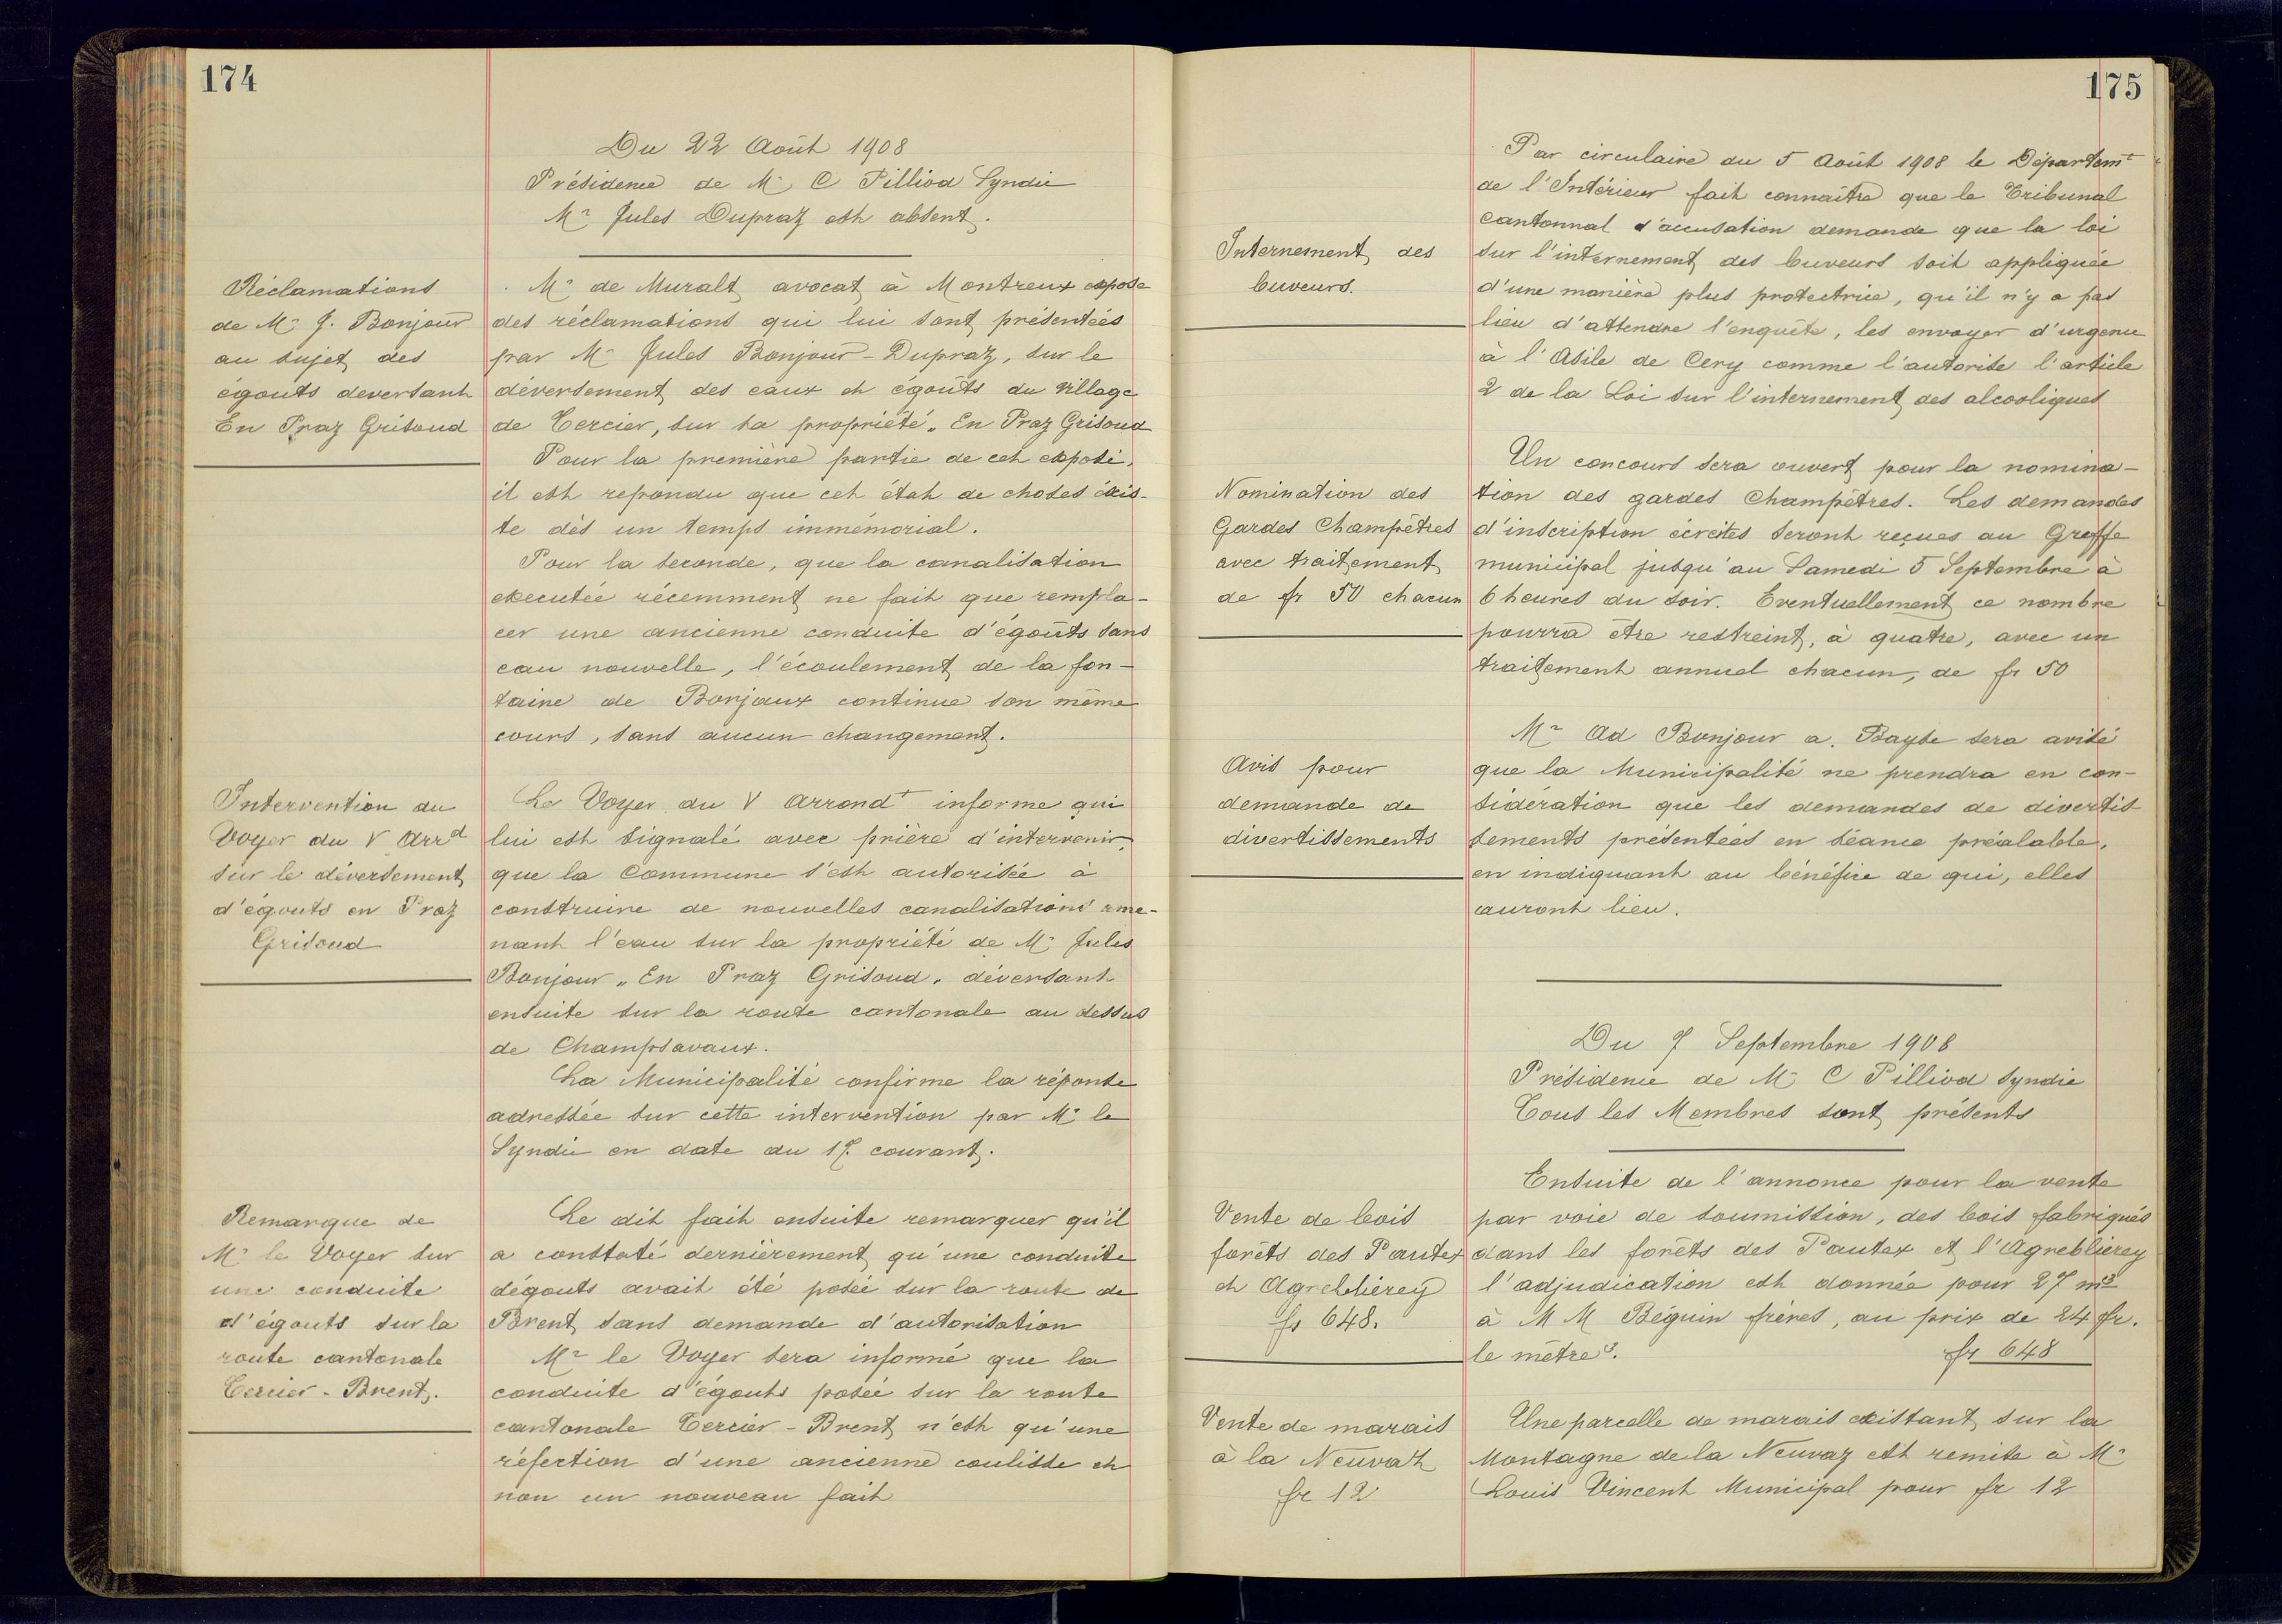 174
Du 22 Août 1908
Présidence de Mr C Pilliod Syndic
Mr Jules Dupraz est absent.
Réclamations
de Mr J. Bonjour
au sujet des
égouts deversant
En Praz Grisoud
Mr de Muralt avocat à Montreux expose
des réclamations qui lui sont présentées
par Mr Jules Bonjour-Dupraz, sur le
déversement des eaux et égoûts du village
de Tercier, sur sa propriété „ En Praz Grisoud
Pour la première partie de cet exposé,
il est repondu que cet état de choses éxis-
te dès un temps immémorial.
Pour la seconde, que la canalisation
executée récemment ne fait que rempla-
cer une ancienne conduite d'égoûts sans
eau nouvelle, l'écoulement de la fon-
taine de Bonjaux continue son même
cours, sans aucun changement.
Intervention du
Voyer du V Arrd
sur le déversement
d'égouts en Praz
Grisoud
Le Voyer du V Arrondt informe qui
lui est signalé avec prière d'intervenir,
que la Commune s'est autorisée à
construire de nouvelles canalisations ame-
nant l'eau sur la propriété de Mr Jules
Bonjour „ En Praz Grisoud „ déversant
ensuite sur la route cantonale au dessus
de Champsavaux.
La Municipalité confirme la réponse
adressée sur cette intervention par Mr le
Syndic en date du 17 courant.
Remarque de
Mr le Voyer sur
une conduite
d'égouts sur la
route cantonale
Tercier - Brent.
Le dit fait ensuite remarquer qu'il
a constaté dernièrement qu'une conduite
dégouts avait été posée sur la route de
Brent sans demande d'autorisation
Mr le Voyer sera informé que la
conduite d'égouts posée sur la route
cantonale Tercier - Brent n'est qu'une
réfection d'une ancienne coulisse et
non un nouveau fait
175
Internement des
buveurs.
Par circulaire du 5 Août 1908 le Départemt
de l'Intérieur fait connaître que le Tribunal
cantonnal d'accusation demande que la loi
sur l'internement des buveurs soit appliquée
d'une manière plus protectrice, qu'il n'y a pas
lieu d'attendre l'enquête, les envoyer d'urgence
à l'Asile de Cery comme l'autorise l'article
2 de la Loi sur l'internement des alcooliques
Nomination des
Gardes Champêtres
avec traitement
de fr 50 chacun
Un concours sera ouvert pour la nomina-
tion des gardes Champêtres. Les demandes
d'inscription écrites seront reçues au Greffe
municipal jusqu'au Samedi 5 Septembre à
6 heures du soir. Eventuellement ce nombre
pourra être restreint, à quatre, avec un
traitement annuel chacun, de fr 50
Avis pour
demande de
divertissements
Mr Ad Bonjour a. Bayse sera avisé
que la Municipalité ne prendra en con-
sidération que les demandes de divertis-
sements présentées en séance préalable,
en indiquant au bénéfice de qui, elles
auront lieu.
Du 7 Septembre 1908
Présidence de Mr C Pilliod Syndic
Tous les Membres sont présents
Vente de bois
forêts des Pautex
et Agreblierey
fr 648.
Ensuite de l'annonce pour la vente
par voie de soumission, des bois fabriqués
dans les forêts des Pautex et l'Agreblierey
l'adjudication est donnée pour 27 m3
à M M Béguin frères, au prix de 24 fr.
le mètre3. fr 648
Vente de marais
à la Neuvaz
fr 12
Une parcelle de marais existant sur la
Montagne de la Neuvaz est remise à Mr
Louis Vincent Municipal pour fr 12